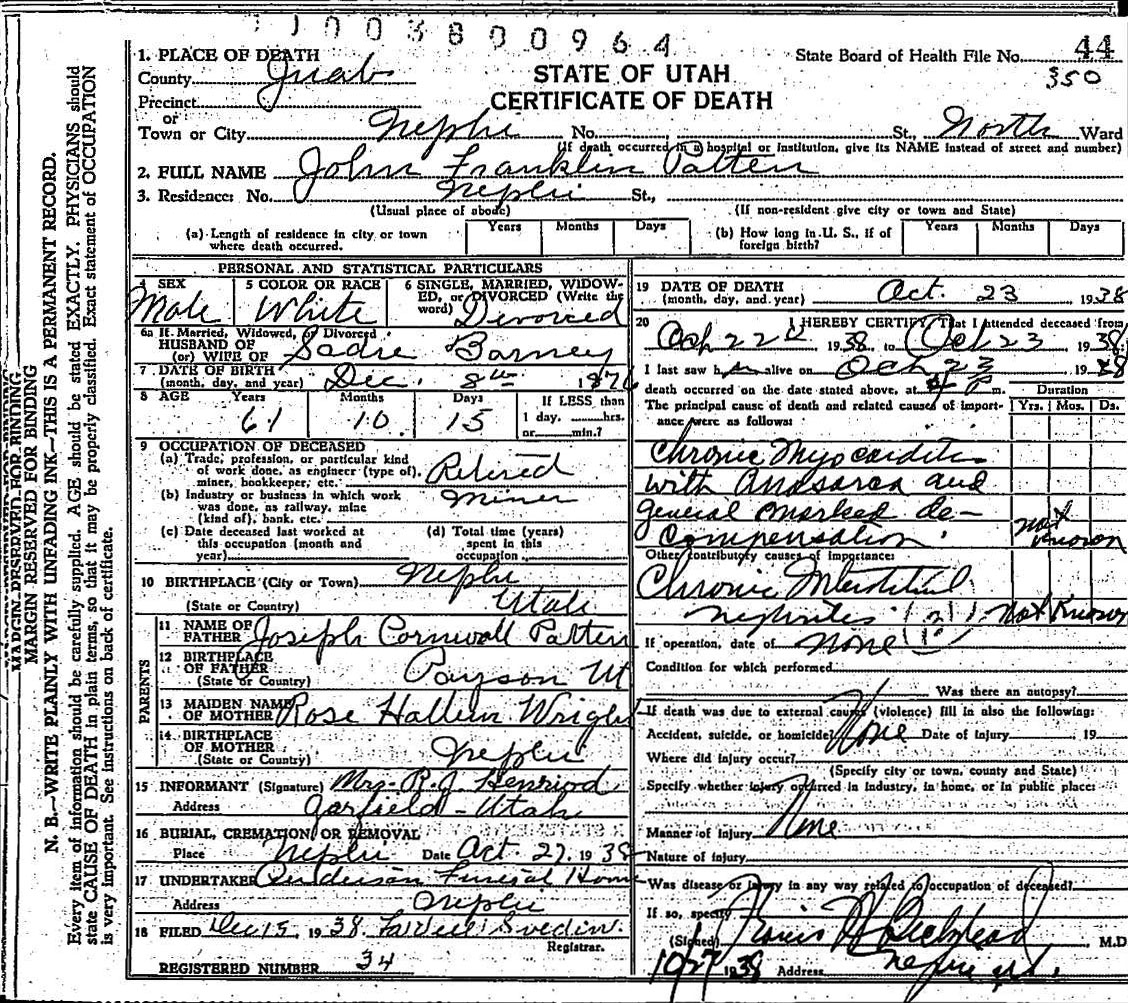 1003800964
1. PLACE OF DEATH
State Board of Health File No. 44
350
County Juab
STATE OF UTAH
CERTIFICATE OF DEATH
Precinct
or
Town or City Nephi No. St., North Ward
(If death occurred in a hospital or institution, give its NAME instead of street and number)
2. FULL NAME John Franklin Patten
3. Residence: No. Nephi St.,
(Usual place of abode) (If non-resident give city or town and State)
(a) Length of residence in city or town where death occurred. Years Months Days
(b) How long in U. S., if of foreign birth? Years Months Days
PERSONAL AND STATISTICAL PARTICULARS
4 SEX Male
5 COLOR OR RACE White
6 SINGLE, MARRIED, WIDOWED, or DIVORCED (Write the word) Divorced
6a If Married, Widowed, or Divorced
HUSBAND OF
(or) WIFE OF Sadie Barney
7 DATE OF BIRTH
(month, day, and year) Dec. 8th 1876
8 AGE Years Months Days If LESS than
61 10 15 1 day, hrs.
or min.?
9 OCCUPATION OF DECEASED
(a) Trade, profession, or particular kind
of work done, as engineer (type of),
miner, bookkeeper, etc. Retired
(b) Industry or business in which work
was done, as railway, mine
(kind of), bank, etc. Miner
(c) Date deceased last worked at
this occupation (month and
year)
(d) Total time (years)
spent in this
occupation
10 BIRTHPLACE (City or Town) Nephi
(State or Country) Utah
PARENTS
11 NAME OF
FATHER Joseph Cornwall Patten
12 BIRTHPLACE
OF FATHER
(State or Country) Payson Ut
13 MAIDEN NAME
OF MOTHER Rose Wright
14 BIRTHPLACE
OF MOTHER
(State or Country) Nephi
15 INFORMANT (Signature) Mrs. R. J. Henriod
Address Garfield - Utah
16 BURIAL, CREMATION, OR REMOVAL
Place Nephi Date Oct. 27, 1938
17 UNDERTAKER Anderson Funeral Home
Address Nephi
18 FILED Dec 15, 1938
Registrar.
REGISTERED NUMBER 34
19 DATE OF DEATH
(month, day, and year) Oct. 23 1938
20 I HEREBY CERTIFY, That I attended deceased from
Oct 22 1938, to Oct 23 1938
I last saw h alive on Oct 23 1938
death occurred on the date stated above, at P m.
The principal cause of death and related causes of importance were as follows:
Duration
Yrs. Mos. Ds.
Chronic Myocarditis
with Anasarca and
general marked de-
compensation. Not Known
Other contributory causes of importance:
Chronic Interstitial
nephritis (?) Not Known
If operation, date of None
Condition for which performed
Was there an autopsy?
If death was due to external causes (violence) fill in also the following:
Accident, suicide, or homicide? None Date of injury 19
Where did injury occur?
(Specify city or town, county and State)
Specify whether injury occurred in industry, in home, or in public place:
Manner of injury None
Nature of injury
Was disease or injury in any way related to occupation of deceased?
If so, specify
(Signed) M.D.
10/27 1938 Address Nephi
MARGIN RESERVED FOR BINDING
MARGIN RESERVED FOR BINDING
N. B.—WRITE PLAINLY WITH UNFADING INK—THIS IS A PERMANENT RECORD.
Every item of information should be carefully supplied. AGE should be stated EXACTLY. PHYSICIANS should
state CAUSE OF DEATH in plain terms, so that it may be properly classified. Exact statement of OCCUPATION
is very important. See instructions on back of certificate.